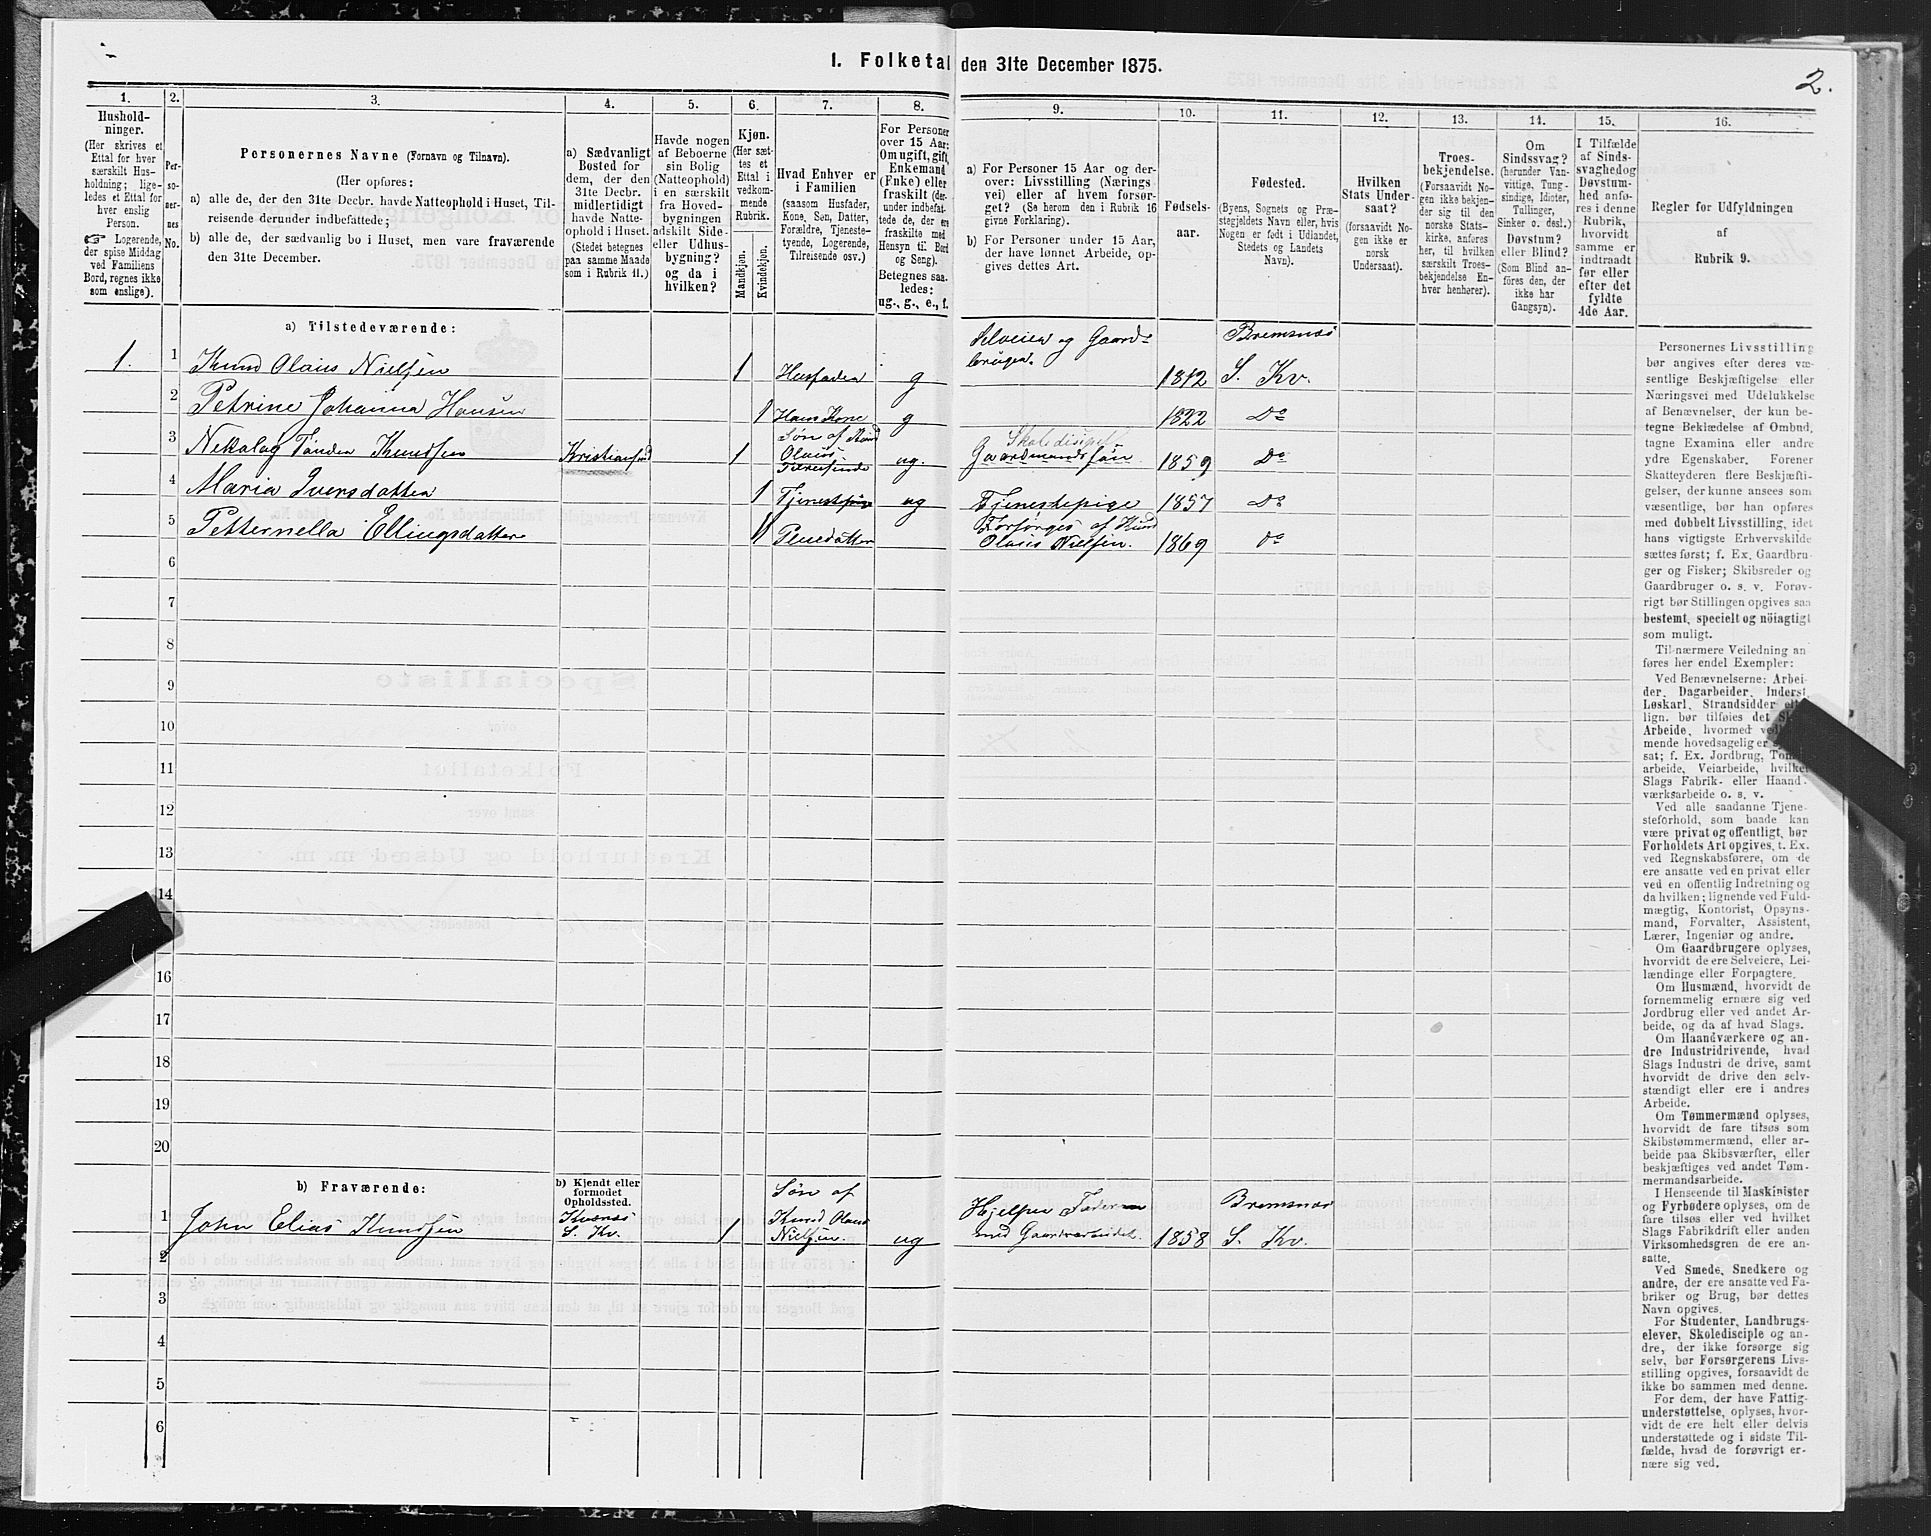 I. Folketal den 31te December 1875.
2.
1.
2.
3.
4.
5.
6.
7.
8.
9.
10.
11.
12.
13.
14.
15.
16.
Hushold-
ninger.
(Her skrives et
Ettal for hver
særskilt Hus-
holdning; lige-
ledes et Ettal for
hver enslig
Person.
☞ Logerende,
der spise Middag
ved Familiens
Bord, regnes ikke
som enslige).
Per-
so-
ner-
nes
No.
Personernes Navne (Fornavn og Tilnavn).
(Her opføres:
a) alle de, der den 31te Decbr. havde Natteophold i Huset, Til-
reisende derunder indbefattede;
b) alle de, der sædvanlig bo i Huset, men vare fraværende
den 31te December.
a) Sædvanligt
Bosted for
dem, der den
31te Decbr.
midlertidigt
havde Natte-
ophold i Huset.
(Stedet betegnes
paa samme Maade
som i Rubrik 11.)
Havde nogen
af Beboerne
sin Bolig
(Natteophold)
i en særskilt
fra Hoved-
bygningen
adskilt Side-
eller Udhus-
bygning?
og da i
hvilken?
Kjøn.
(Her sæt-
tes et
Ettal i
vedkom-
mende
Rubrik.
Mandkjøn.
Kvindekjøn.
Hvad Enhver er
i Familien
(saasom Husfader,
Kone, Søn, Datter,
Forældre, Tjeneste-
tyende, Logerende,
Tilreisende osv.)
For Personer
over 15 Aar:
Om ugift, gift,
Enkemand
(Enke) eller
fraskilt (der-
under indbefat-
tede de, der ere
fraskilte med
Hensyn til Bord
og Seng).
Betegnes saa-
ledes:
ug., g., e., f.
a) For Personer 15 Aar og der-
over: Livsstilling (Nærings-
vei) eller af hvem forsør-
get? (Se herom den i Rubrik 16
givne Forklaring).
b) For Personer under 15 Aar,
der have lønnet Arbeide, op-
gives dettes Art.
Fødsels-
aar.
Fødested.
(Byens, Sognets og Præ-
stegjeldets Navn eller, hvis
Nogen er født i Udlandet,
Stedets og Landets
Navn).
Hvilken
Stats Under-
saat?
(forsaavidt No-
gen ikke er
norsk
Undersaat).
Troes-
bekjendelse.
(Forsaavidt No-
gen ikke bekjen-
der sig til den
norske Stats-
kirke, anføres
her, til hvilken
særskilt Troes-
bekjendelse En-
hver henhører).
Om
Sindssvag?
(herunder Van-
vittige, Tung-
sindige, Idioter,
Tullinger,
Sinker o. desl.)
Døvstum?
eller Blind?
(Som Blind an-
føres den, der
ikke har
Gangsyn).
I Tilfælde
af Sinds-
svaghed og
Døvstum-
hed anfø-
res i denne
Rubrik,
hvorvidt
samme er
indtraadt
før eller
efter det
fyldte
4de Aar.
Regler for Udfyldningen
af
Rubrik 9.
a) Tilstedeværende:
1. 1 Knud Olaus Nielsen 1 Husfader g Selveier og Gaard-
bruger. 1812 Bremsnæs
S. Kv.
2 Petrine Johanna Hansen 1 Hans Kone g 1822 Do
3 Nekolag Tønder Knudsen Kristiansund 1 Søn af Knud
Olaus
Tilreisende ug. Skoledisipel
Gaardmands søn 1859 Do
4 Maria Iversdatter 1 Tjenestepige ug Tjenestepige 1857 Do
5 Petternella Ellingsdatter 1 Pleiedatter Forsørges af Knud
Olaus Nielsen. 1869 do
6
7
8
9
10
11
12
13
14
16
17
18
19
20
b) Fraværende:
b) Kjendt eller
formodet
Opholdssted.
1 John Elias Knudsen Kværnæs
S. Kv. 1 Søn af
Knud Olaus
Nielsen. ug Hjelper Faderen
med Gaardsarbeidet. 1858 Bremsnæs
S. Kv.
2
3
4
5
6
Personernes Livsstilling
bør angives efter deres væ-
sentlige Beskjæftigelse eller
Næringsvei med Udelukkelse
af Benævnelser, der kun be-
tegne Beklædelse af Ombud,
tagne Examina eller andre
ydre Egenskaber. Forener
Skatteyderen flere Beskjæfti-
gelser, der kunne ansees som
væsentlige, bør han opføres
med dobbelt Livsstilling, idet
hans vigtigste Erhvervskilde
sættes først; f. Ex. Gaardbru-
ger og Fisker; Skibsreder og
Gaardbruger o. s. v. Forøv-
rigt bør Stillingen opgives saa
bestemt, specielt og nöiagtigt
som muligt.
Til nærmere Veiledning an-
føres her endel Exempler:
Ved Benævnelserne: Arbei-
der, Dagarbeider, Inderst,
Løskarl, Strandsidder eller
lign. bør tilføies det Slags
Arbeide, hvormed vedkom-
mende hovedsagelig er syssel-
sat; f. Ex. Jordbrug, Tomte-
arbeide, Veiarbeide, hvilket
Slags Fabrik- eller Haand-
værksarbeide o. s. v.
Ved alle saadanne Tjene-
steforhold, som baade kan
være privat og offentligt, bør
Forholdets Art opgives, t. Ex.
ved Regnskabsførere, om de
ere ansatte ved en privat eller
ved en offentlig Indretning og
da hvilken; lignende ved Fuld-
mægtig, Kontorist, Opsyns-
mand, Forvalter, Assistent,
Lærer, Ingeniør og andre.
Om Gaardbrugere oplyses,
hvorvidt de ere Selveiere, Lei-
lændinge eller Forpagtere.
Om Husmænd, hvorvidt de
fornemmelig ernære sig ved
Jordbrug eller ved andet Ar-
beide, og da af hvad Slags.
Om Haandværkere og an-
dre Industridrivende, hvad
Slags Industri de drive, samt
hvorvidt de drive den selv-
stændigt eller ere i andres
Arbeide.
Om Tømmermænd oplyses,
hvorvidt de fare tilsøs som
Skibstømmermænd, eller ar-
beide paa Skibsværfter, eller
beskjæftiges ved andet Tøm-
mermandsarbeide.
I Henseende til Maskinister
og Fyrbødere oplyses, om de
fare tilsøs eller ved hvilket
Slags Fabrikdrift eller anden
Virksomhedsgren de ere an-
satte.
Ved Smede, Snedkere og
andre, der ere ansatte ved Fa-
briker og Brug, bør dettes
Navn opgives.
For Studenter, Landbrugs-
elever, Skoledisciple og an-
dre, der ikke forsørge sig
selv, bør Forsørgerens Livs-
stilling opgives, forsaavidt de
ikke bo sammen med denne.
For dem, der have Fattig-
understøttelse, oplyses, hvor-
vidt de ere helt eller delvis
understøttede og i sidste Til-
fælde, hvad de forøvrigt er-
nære sig ved.